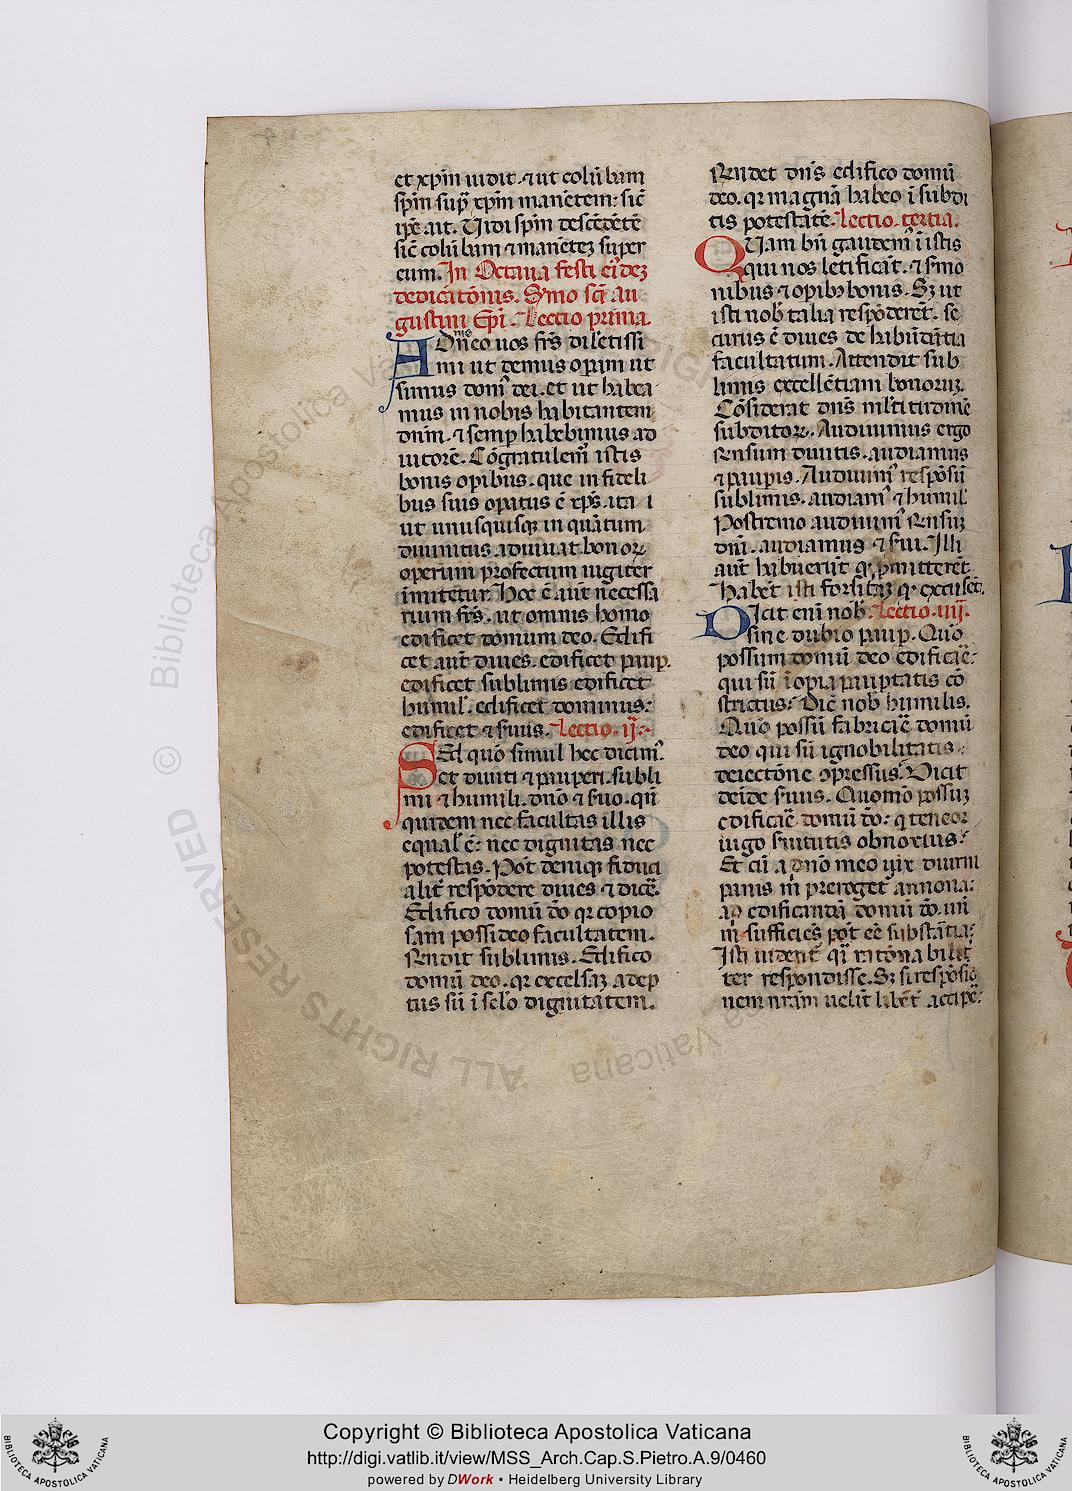 et xp̄m uidit. ⁊ ut colūbam
sp̄m sup̄ xp̄m manētem: sic̄
ip̄e ait. Uidi sp̄m descēdētē
sic̄ colūbam ⁊ manētez super
eum. In Octaua festi ei᷒dez
dedicatōnis. Sẏmo sc̄i au
gustini Ep̄i. Lectio prima.
ADn̄eo uos fr̄s dilc̄tissi
mi ut demus operam ut
simus dom᷒ dei. et ut habea
mus in nobis habitantem
dn̄m. ⁊ semp̄ habebimus ad
iutorē. Cōgratulem᷒ istis
bonis operibus. que in fideli
bus suis opatus ē xp̄s. ita i
ut unusquisq; in quātum
diuinitus adiuuat bonoꝝ
operum profectum iugiter
imitetur. Hec ē aūt necessa
rium fr̄s. ut omnis homo
edificet domum deo. Edifi
cet aūt diues. edificet paup̄.
edificet sublimis edificet
humil᷒. edificet dominus:
edificet ⁊ s̄uus. Lectio. ij:-
SEd quō simul hec dicim᷒.
et diuiti ⁊ pauperi. subli
mi ⁊ humili. dn̄o ⁊ s̄uo. qn̄
quidem nec facultas illis
equal᷒ ē: nec dignitas nec
potestas. Pot̄ deniq; fiduci
alit̄ respōdere diues ⁊ dicē.
Edifico domū dō qr copio
sam possideo facultatem.
Rn̄dit sublimis. Edifico
domū deo. qr excelsaz adep
tus sū ī sc̄lo dignitatem.
Rn̄det dn̄s edifico domū
deo. qr magnā habeo ī subdi
tis potestatē. Lectio. tertia.
QUam bn̄ gaudem᷒ ī istis
qui nos letificāt. ⁊ s̄mo
nibus ⁊ opib; bonis. Sz ut
isti nob̄ talia respōderet̄. se
curus ē diues de habūdātia
facultatum. Attendit sub
limis excellētiam bonoruz.
Cōsiderat dn̄s ml̄titudinē
subditoꝝ. Audiuimus ergo
sensum diuitis. audiamus
⁊ paup̄is. Audiuim᷒ respōsū
sublimis. audiam᷒ ⁊ humil᷒
Postremo audiuim᷒ sensuz
dn̄i. audiamus ⁊ s̄ui. Illi
aūt habuerūt qđ pmitterēt
habēt isti forsitaz qđ excusēt.
DIcit eni᷒ nob̄. Lectio. iiij.
sine dubio paup̄. Quō
possum domū deo edificāe:
qui sū īopia paupt̄atis cō
strictus: Dic̄ nob̄ humilis.
Quō possū fabricāe domū
deo qui sū ignobilitatis
deiectōne opressus: Dicit
deīde s̄uus. Quomō possuz
edificāe domū dō: q teneor
iugo s̄uitutis obnoxius:
Et cū a dn̄o meo uix diurni
panis m̄ preroget̄ annona:
ad edificandā domū dō. un̄
m̄ sufficiēs pot̄ eē substātia:
Isti uident̄ q᷒i ratōna bilit̄
ter respondisse. Sz si respōsio
nem nr̄am uelit̄ libēt̄ accipē:
Copyright © Biblioteca Apostolica Vaticana
http://digi.vatlib.it/view/MSS_Arch.Cap.S.Pietro.A.9/0460
powered by DWork • Heidelberg University Library
BIBLIOTECA APOSTOLICA VATICANA
BIBLIOTECA APOSTOLICA VATICANA